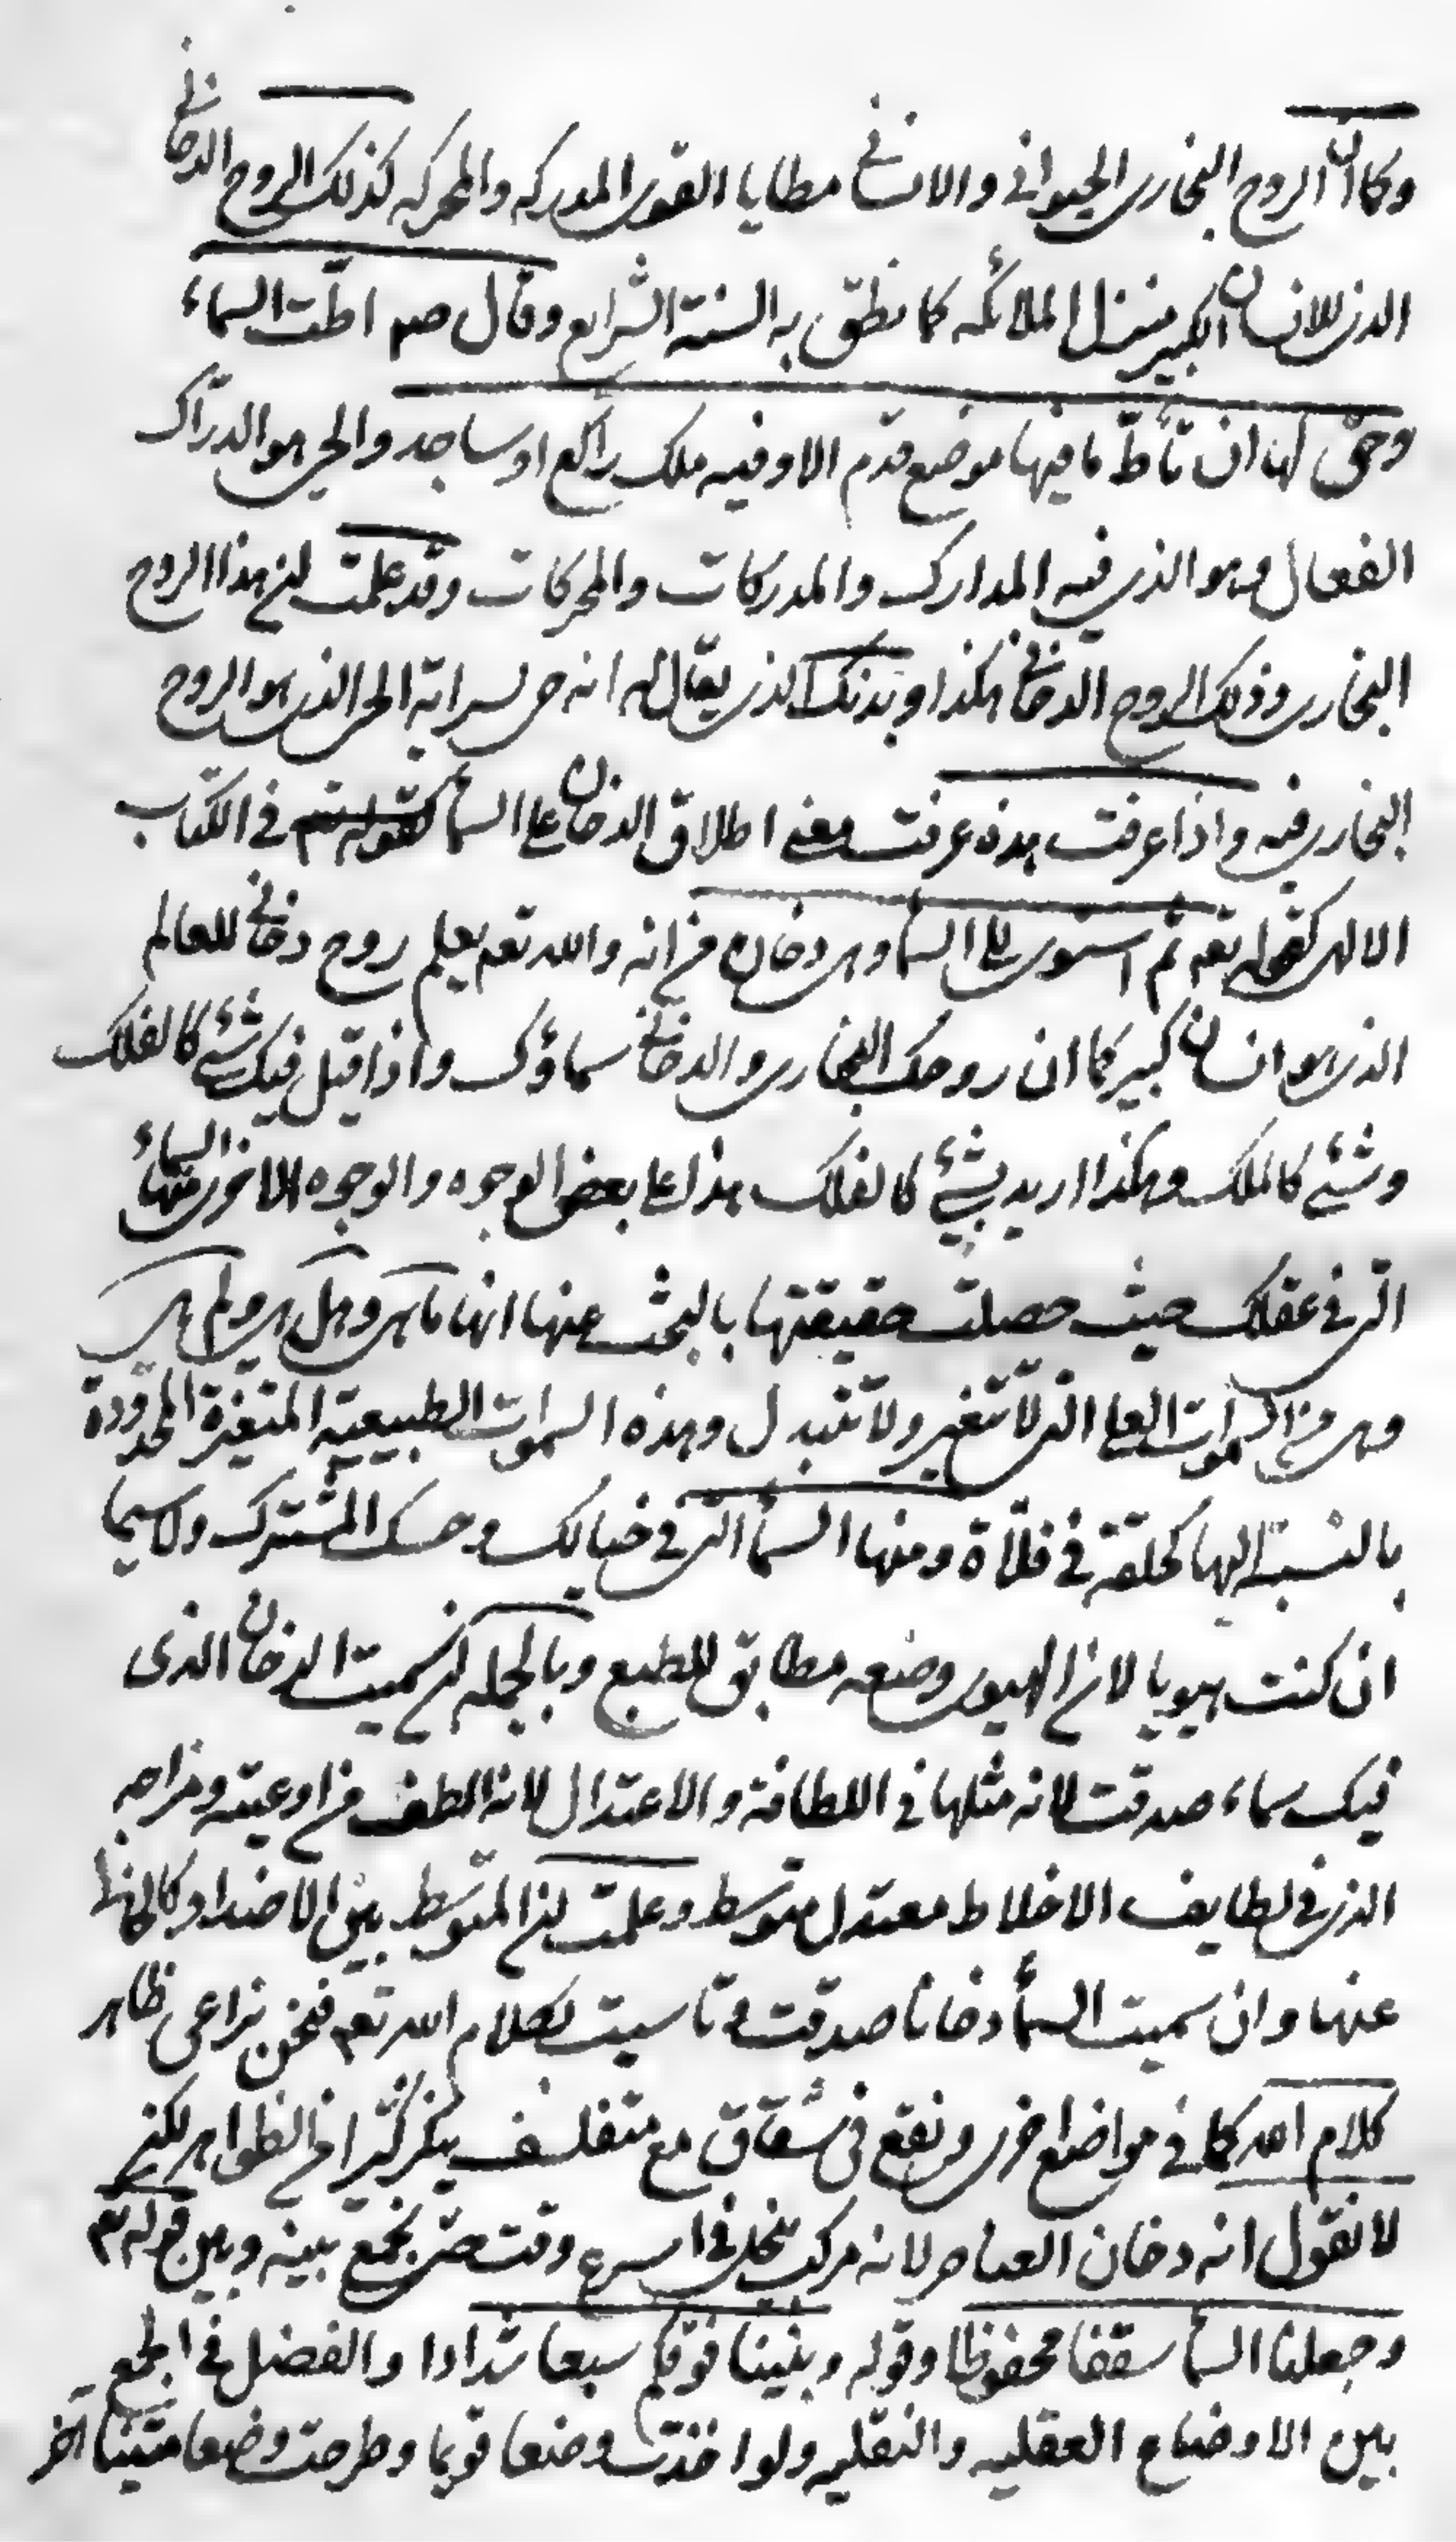 وكما ان الروح البخارى الحيوانى والانسانى مطايا القوى المدركه والمحركه كذلك الروح الدخانى
الذى للانسان الكبير منزل الملائكه كما نطق به السنة الشرايع وقال صم اطّت السماء
وحق لها ان تأطّ ما فيها موضع قدم الا وفيه ملك راكع او ساجد والحى هو الدرّاك
الفعال وهو الذى فيه المدارك والمدركات والمحركات وقد علمت ان هذا الروح
البخارى وذلك الروح الدخانى هكذا وبدنك الذى يقال له انه حى لسراية الحى الذى هو الروح
البخارى فيه واذا عرفت هذه عرفت معنى اطلاق الدخان على السمأ كقوله تعم فى الكتاب
الالهى كقوله تعم ثم استوى الى السمأ وهى دخان فانه والله تعم يعلم روح دخانى للعالم
الذى هو انسان كبير كما ان روحك البخارى والدخانى سماؤك واذا قيل فيك شئ كالفلك
وشئ كالملك وهكذا اريد بشئ كالفلك هذا على بعض الوجوه والوجوه الاخرى منها السماء
التى فى عقلك حيث حصلت حقيقتها بالبحث عنها انها ما هى وهل هى ولم هى
وهى من السموات العلى التى لا تتغير ولا تتبدل وهذه السموات الطبيعية المتغيرة المحدودة
بالنسبة اليها كحلقة فى فلاة ومنها السمأ التى فى خيالك وحسك المشترك ولا سيما
ان كنت هيويا لان الهيوى وضعه مطابق للطبع وبالجمله ان سميت الدخان الذى
فيك سماء صدقت لانه مثلها فى اللطافة والاعتدال لانه الطف من اوعيته ومزاجه
الذى فى لطايف الاخلاط معتدل متوسط وعلمت ان المتوسط بين الاضداد كالخالى
عنها وان سميت السمأ دخانا صدقت وتاسيت بكلام الله تعم فنحن نراعى ظاهر
كلام الله كما فى مواضع اخرى ونقع فى شقاق مع متفلسف ينكر كثيرا من الظواهر لكن
لا نقول انه دخان العناصر لانه مركب ينحل فى اسرع وقت حتى نجمع بينه وبين قوله تعم
وجعلنا السمأ سقفا محفوظا وقوله وبنينا فوقكم سبعا شدادا والفضل فى الجمع
بين الاوضاع العقليه والنقليه ولو اخذت وضعا قويما وطرحت وضعا متينا آخر